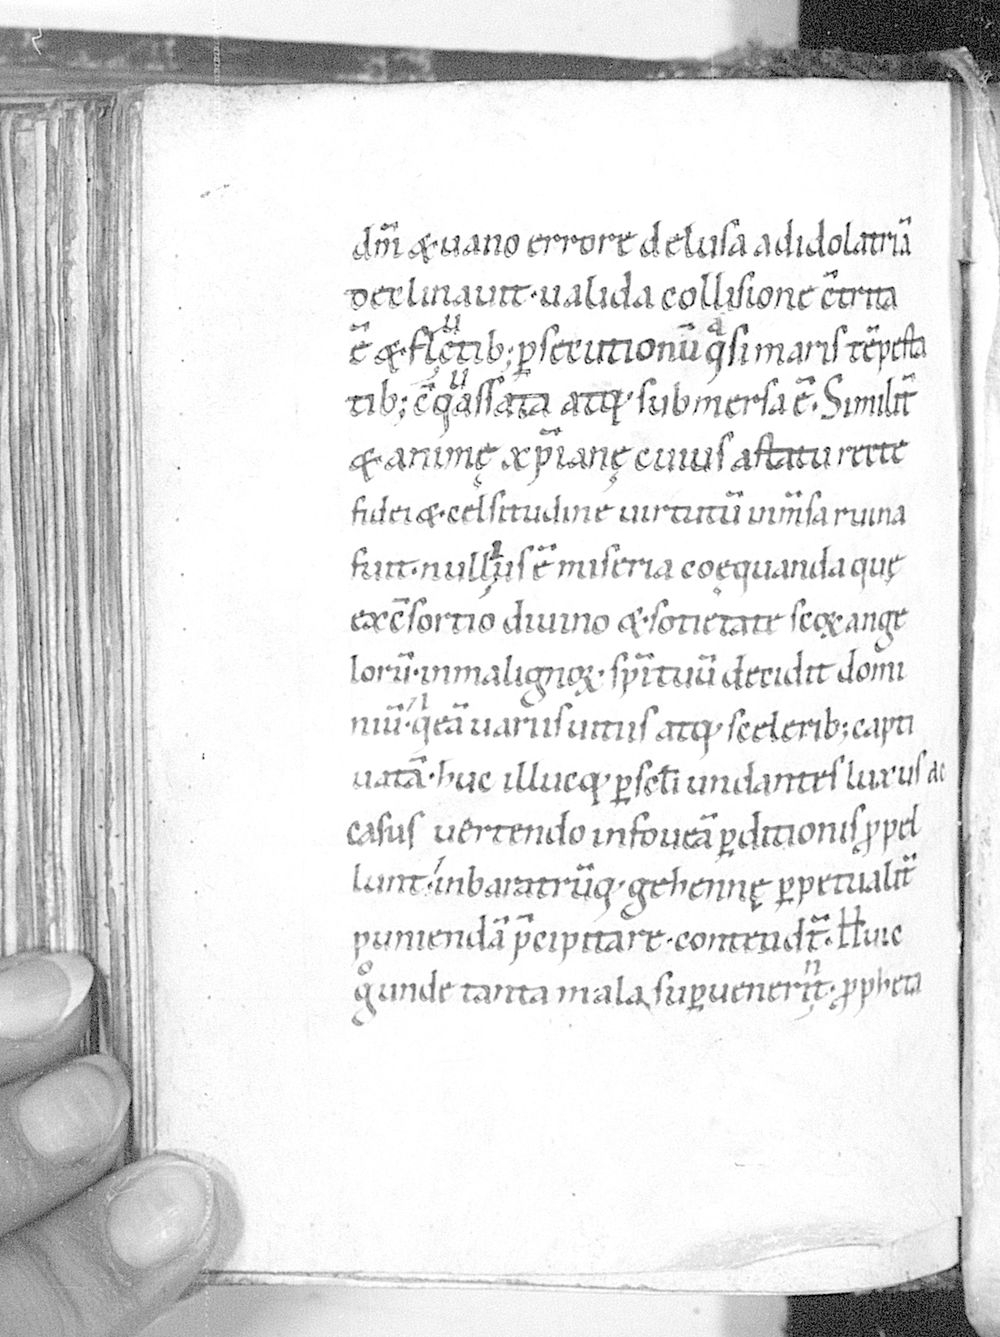 dm̄ &·uano errore delusa adidolatriā
declinauit·ualida collisione c̄trita
ē &·fluctib; p̱secutionū qͣsi maris tēpesta
tib; c̄quassata atq;·submersa ē. Similit̄
&·animę xp̄ianę cuius astatu recte
fidei &·celsitudine uirtutū uim̄sa ruina
fuit·nulli᷒ ē miseria coęquanda quę
exc̄sortio diuino &·sotietate scoꝝ ange
lorū·inmalignoꝝ·sp̄ituū decidit domi
niū·qͥ eā uariis uitiis atq;·scelerib; capti
uatā·huc illucq;·ꝑ sc̄li undantes luxus de
casus uertendo infoueā ꝑditionis ꝓpel
lunt·inbaratrūq;·gehennę ꝑpetualit̄
puniendā p̄cipitare·contendt̄·Huic
gͦ unde tanta mala suꝑuenerint̄·ꝓpheta